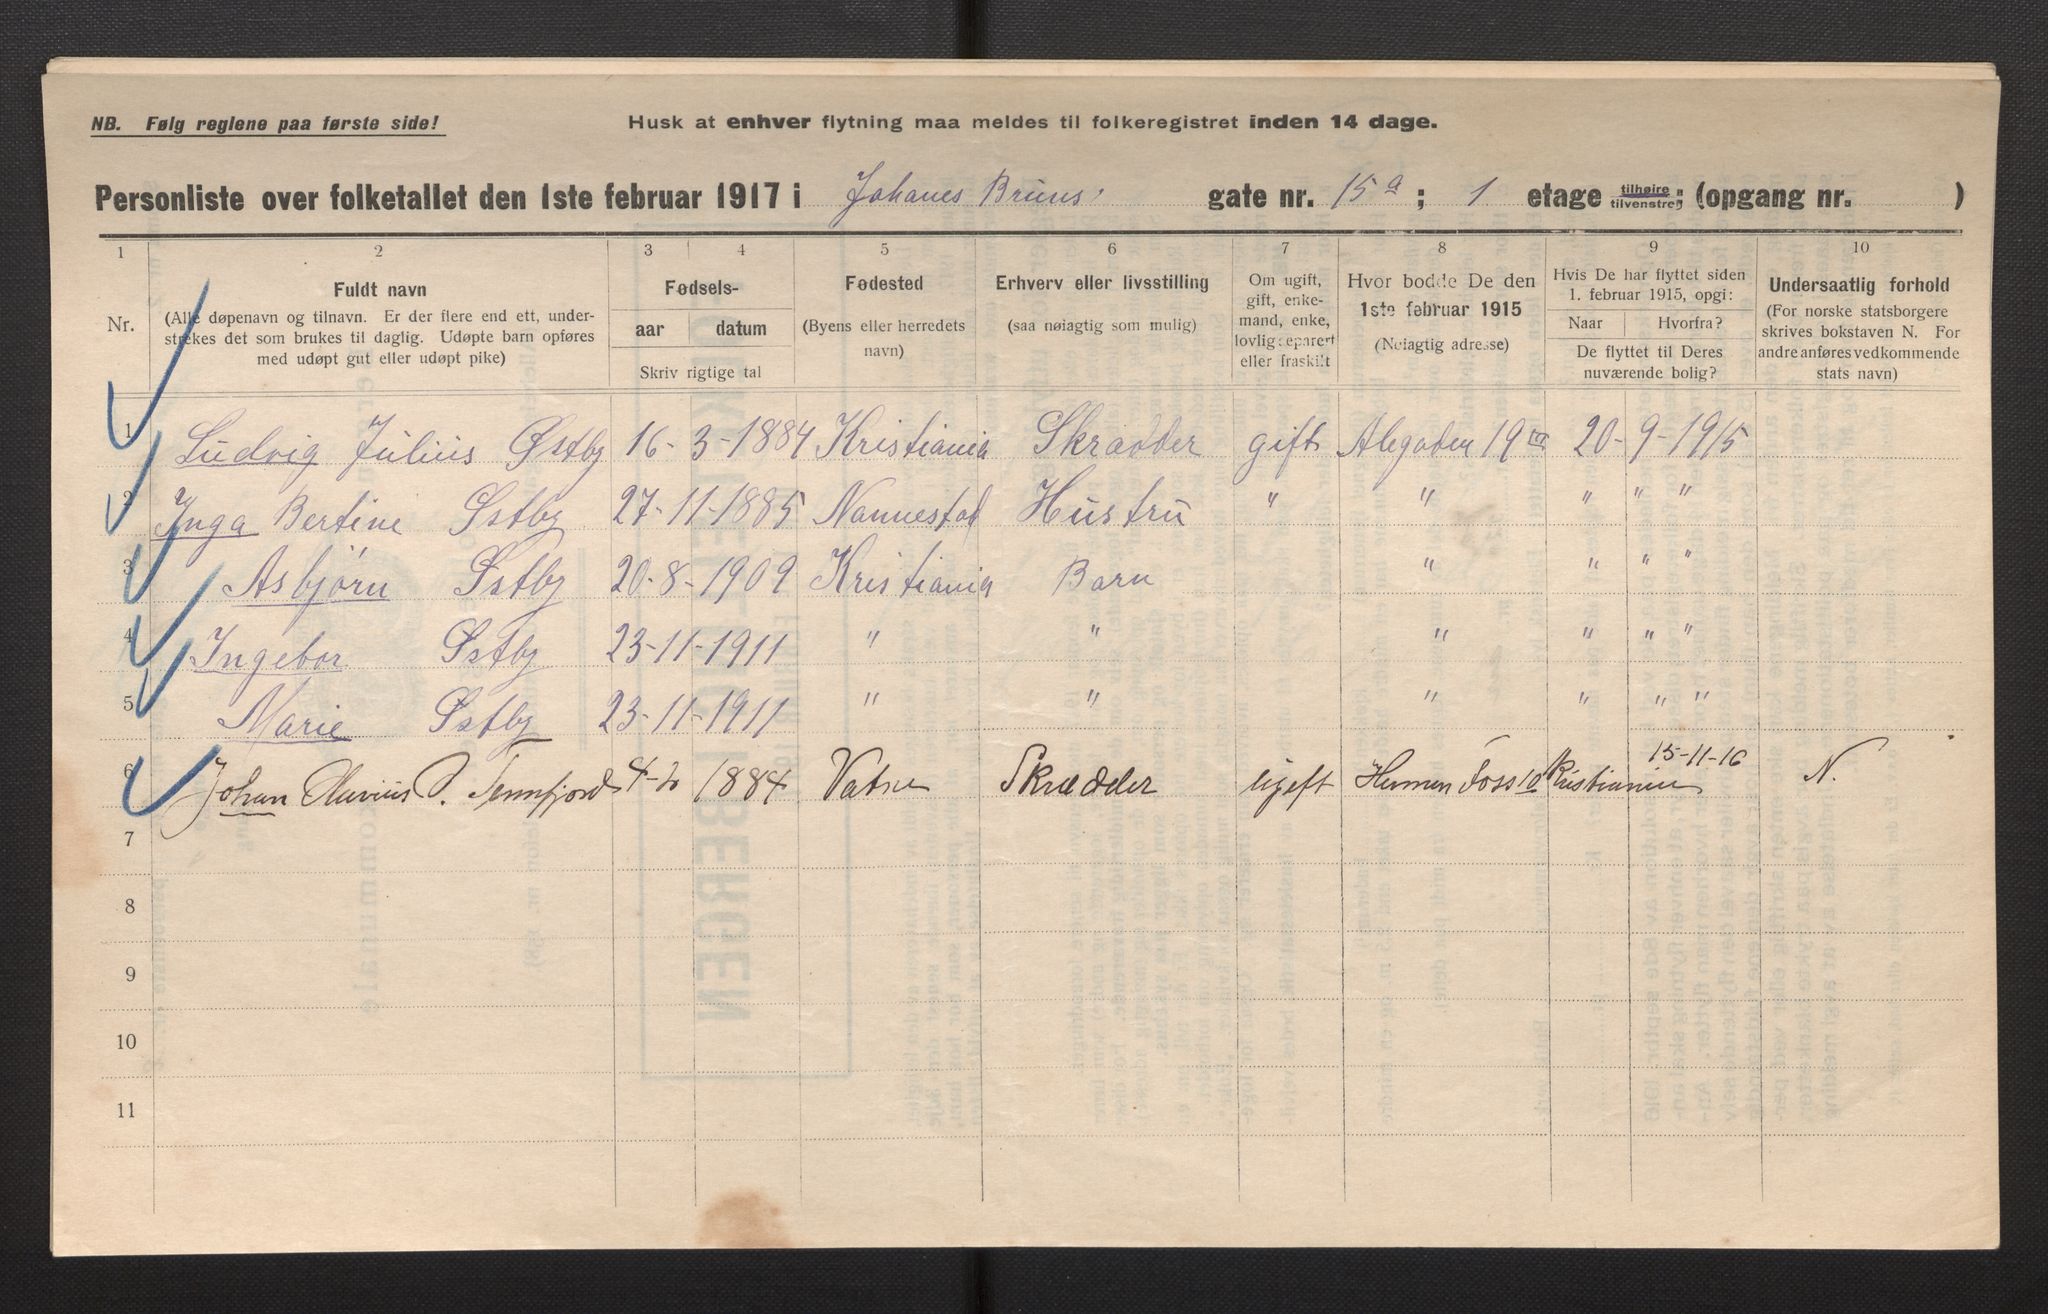 NB. Følg reglene paa første side!
Husk at enhver flytning maa meldes til folkeregistret inden 14 dage.
Personliste over folketallet den 1ste februar 1917 i Johanes Bruns gate nr. 15 a ; 1 etage tilhøire tilvenstre ; (opgang nr. )
1 2 3 4 5 6 7 8 9 10
Nr.
Fuldt navn
(Alle døpenavn og tilnavn. Er der flere end ett, under-
strekes det som brukes til daglig. Udøpte barn opføres
med udøpt gut eller udøpt pike)
Fødsels-
aar datum
Skriv rigtige tal
Fødested
(Byens eller herredets
navn)
Erhverv eller livsstilling
(saa nøiagtig som mulig)
Om ugift,
gift, enke-
mand, enke,
lovlig separert
eller fraskilt
Hvor bodde De den
1ste februar 1915
(Nøiagtig adresse)
Hvis De har flyttet siden
1. februar 1915, opgi:
Naar Hvorfra?
De flyttet til Deres
nuværende bolig?
Undersaatlig forhold
(For norske statsborgere
skrives bokstaven N. For
andre anføres vedkommende
stats navn)
1 Ludvig Julius Østby 16-3-1884 Kristiania Skrædder gift Alegaden 19 20-9-1915
2 Inga Bertine Østby 27-11-1885 Nannestad Hustru " " " " "
3 Asbjørn Østby 20-8-1909 Kristiania Barn " " " "
4 Ingebor Østby 23-11-1911 " " " " " "
5 Marie Østby 23-11-1911 " " " " " "
6 Johan Olavius P. Tennfjord 4-2 1884 Vatne Skrædder ugift Herman Foss 10 Kristiania 15-11-16 N.
7
8
9
10
11